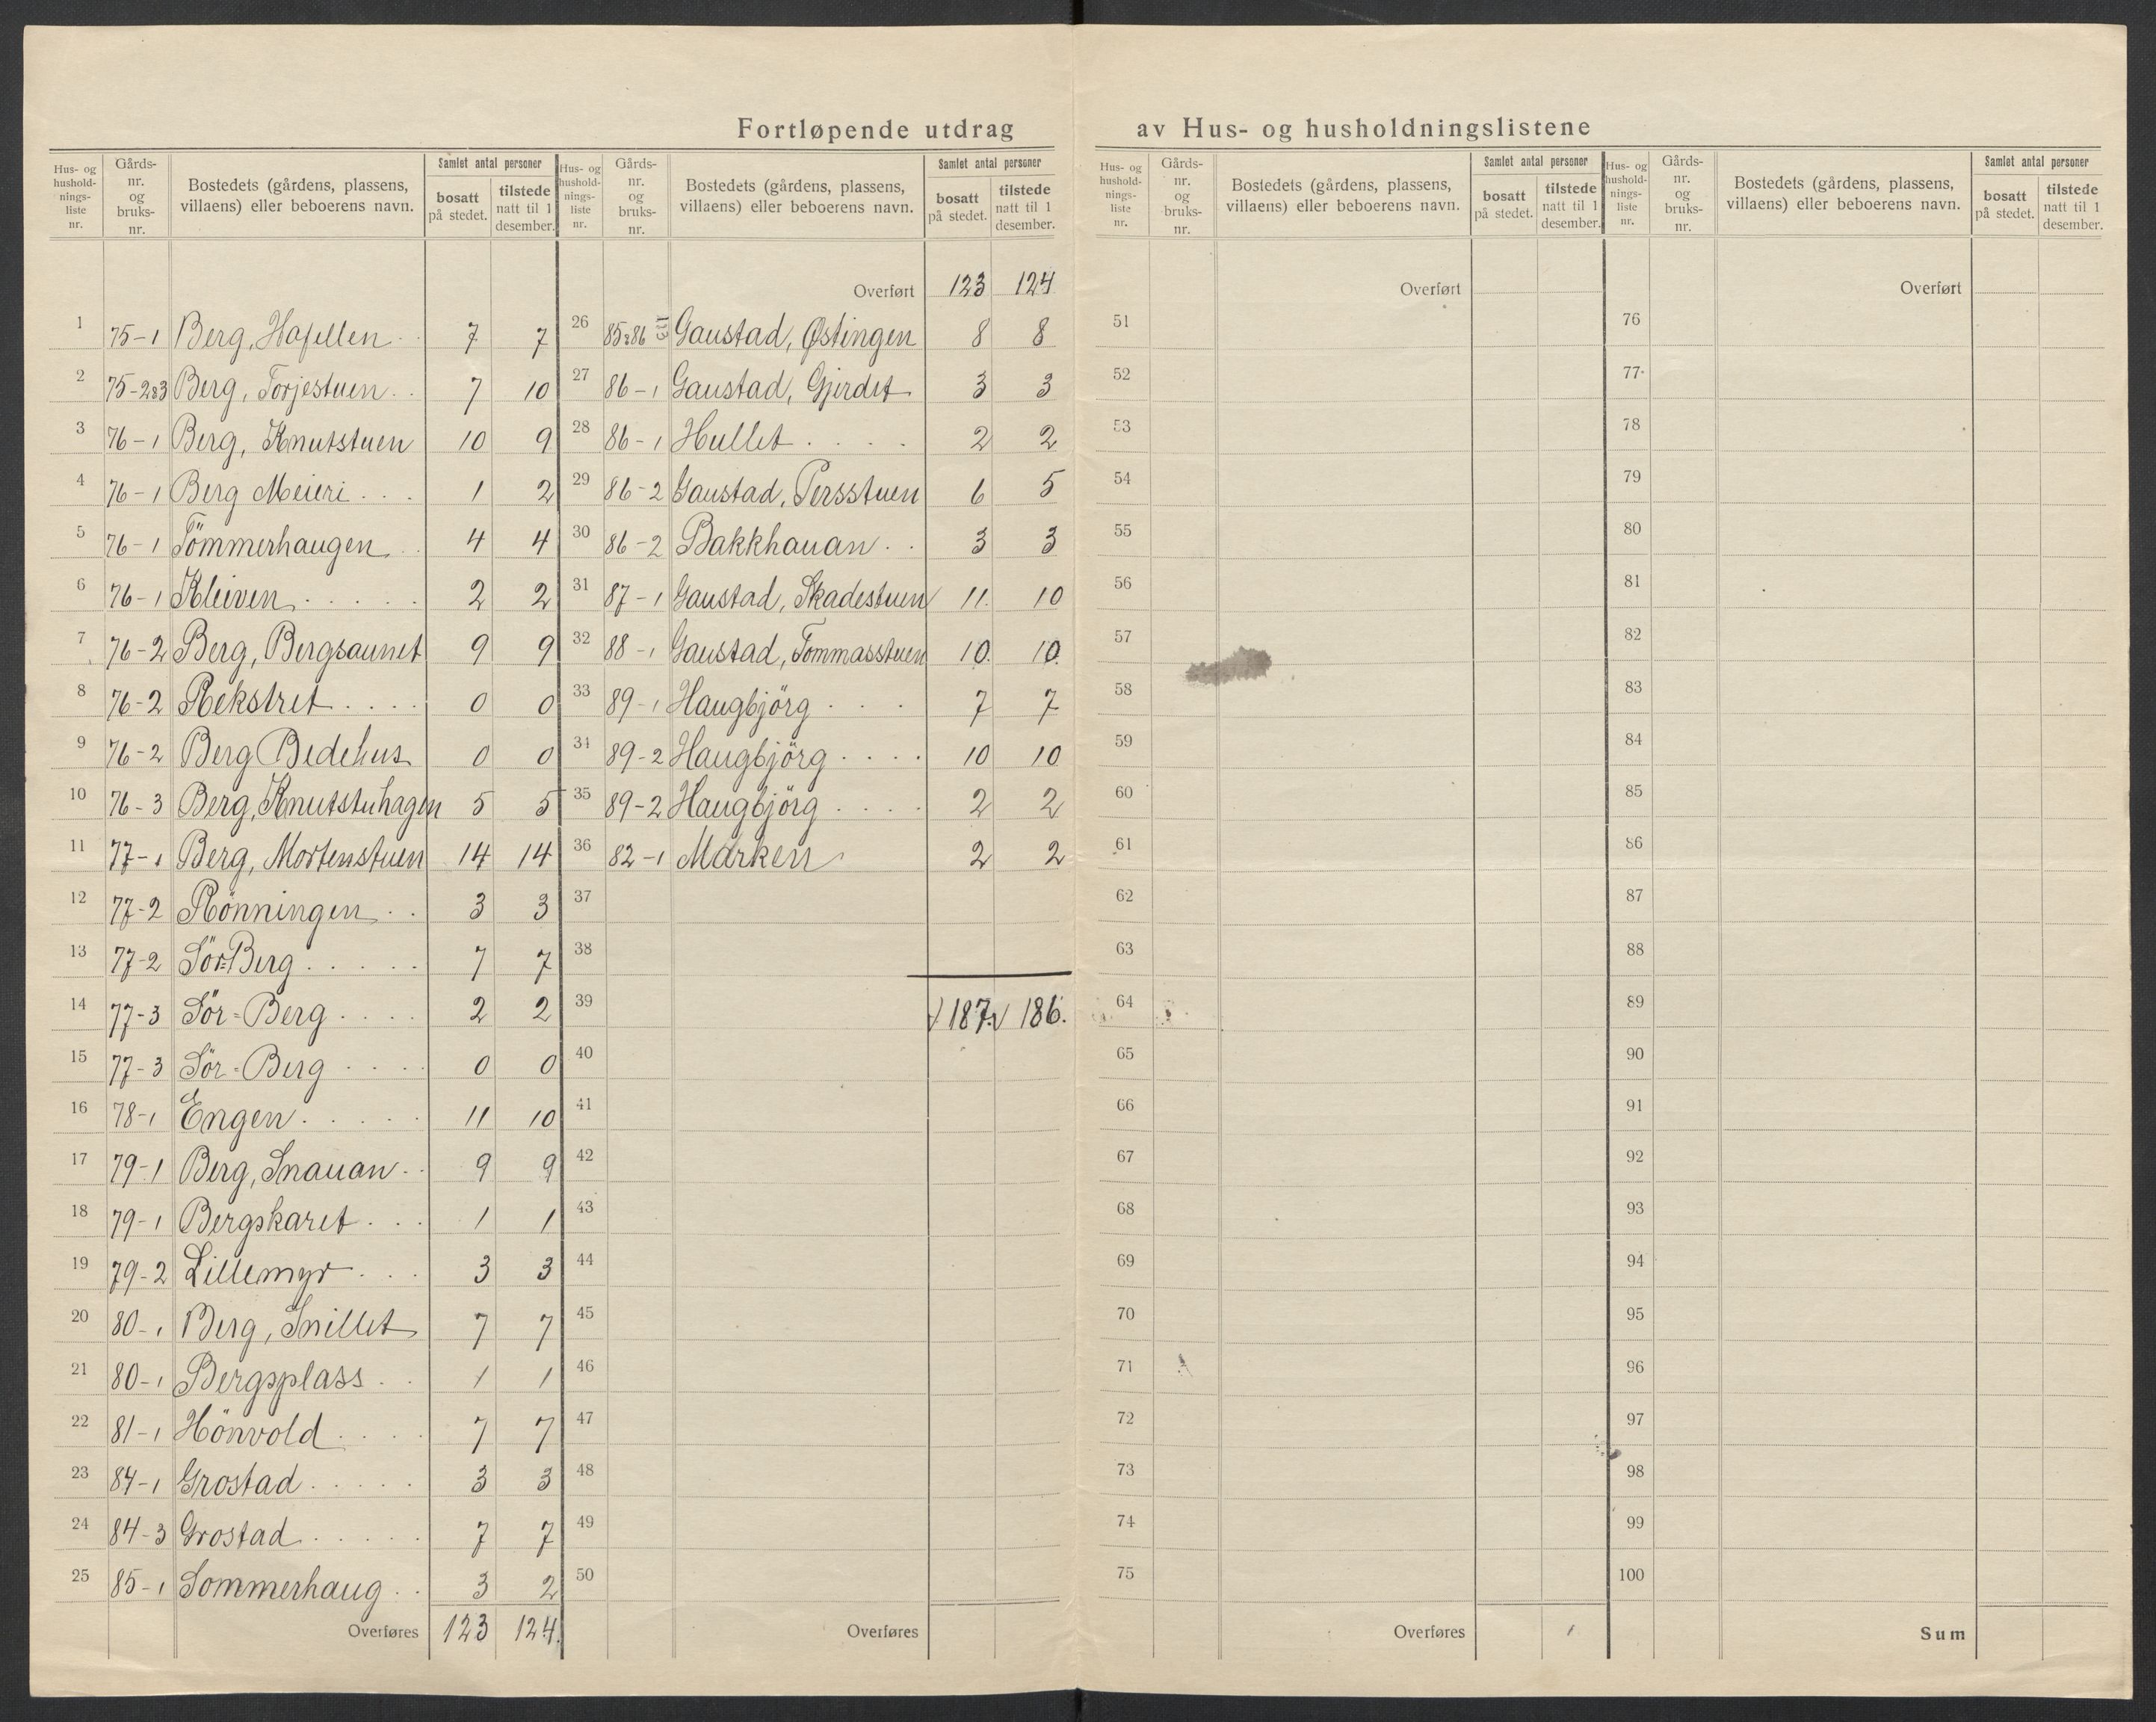 Fortløpende utdrag av Hus- og husholdningslistene
Hus- og hushold-nings-liste nr. | Gårds-nr. og bruks-nr. | Bostedets (gårdens, plassens, villaens) eller beboerens navn. | Samlet antal personer | bosatt på stedet. | tilstede natt til 1 desember.
1 75-1 Berg, 7 7
2 75-2&3 Berg, Torjestuen 7 10
3 76-1 Berg, Knutstuen 10 9
4 76-1 Berg Meieri 1 2
5 76-1 Tömmerhaugen 4 4
6 76-1 Kleiven 2 2
7 76-2 Berg, Bergsaunet 9 9
8 76-2 Rekstret 0 0
9 76-2 Berg Bedehus 0 0
10 76-3 Berg, Knutstuhagen 5 5
11 77-1 Berg, Mortenstuen 14 14
12 77-2 Rönningen 3 3
13 77-2 Sör-Berg 7 7
14 77-3 Sör-Berg 2 2
15 77-3 Sör-Berg 0 0
16 78-1 Engen 11 10
17 79-1 Berg, Snauan 9 9
18 79-1 Bergskaret 1 1
19 79-2 Lillemyr 3 3
20 80-1 Berg, Snillet 7 7
21 80-1 Bergsplass 1 1
22 81-1 Hönvold 7 7
23 84-1 Grostad 3 3
24 84-3 Grostad 7 7
25 85-1 Sommerhaug 3 2
Overføres 123 124.
Hus- og hushold-nings-liste nr. | Gårds-nr. og bruks-nr. | Bostedets (gårdens, plassens, villaens) eller beboerens navn. | Samlet antal personer | bosatt på stedet. | tilstede natt til 1 desember.
Overført 123 124
26 85&86 Gaustad, Østingen 8 8
27 86-1 Gaustad, Gjerdet 3 3
28 86-1 Hullet 2 2
29 86-2 Gaustad, Persstuen 6 5
30 86-2 Bakkhauan 3 3
31 87-1 Gaustad, Skadestuen 11. 10
32 88-1 Gaustad, Tommasstuen 10. 10.
33 89-1 Haugbjörg 7 7
34 89-2 Haugbjörg 10 10
35 89-2 Haugbjörg 2 2
36 82-1 Marken 2 2
37
38
39 187. 186.
40
41
42
43
44
45
46
47
48
49
50
Overføres
Hus- og hushold-nings-liste nr. | Gårds-nr. og bruks-nr. | Bostedets (gårdens, plassens, villaens) eller beboerens navn. | Samlet antal personer | bosatt på stedet. | tilstede natt til 1 desember.
Overført
51
52
53
54
55
56
57
58
59
60
61
62
63
64
65
66
67
68
69
70
71
72
73
74
75
Overføres
Hus- og hushold-nings-liste nr. | Gårds-nr. og bruks-nr. | Bostedets (gårdens, plassens, villaens) eller beboerens navn. | Samlet antal personer | bosatt på stedet. | tilstede natt til 1 desember.
Overført
76
77
78
79
80
81
82
83
84
85
86
87
88
89
90
91
92
93
94
95
96
97
98
99
100
Sum